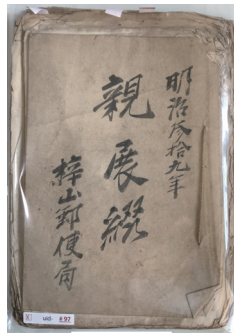 明治参拾九年
親展綴
梓山郵便局